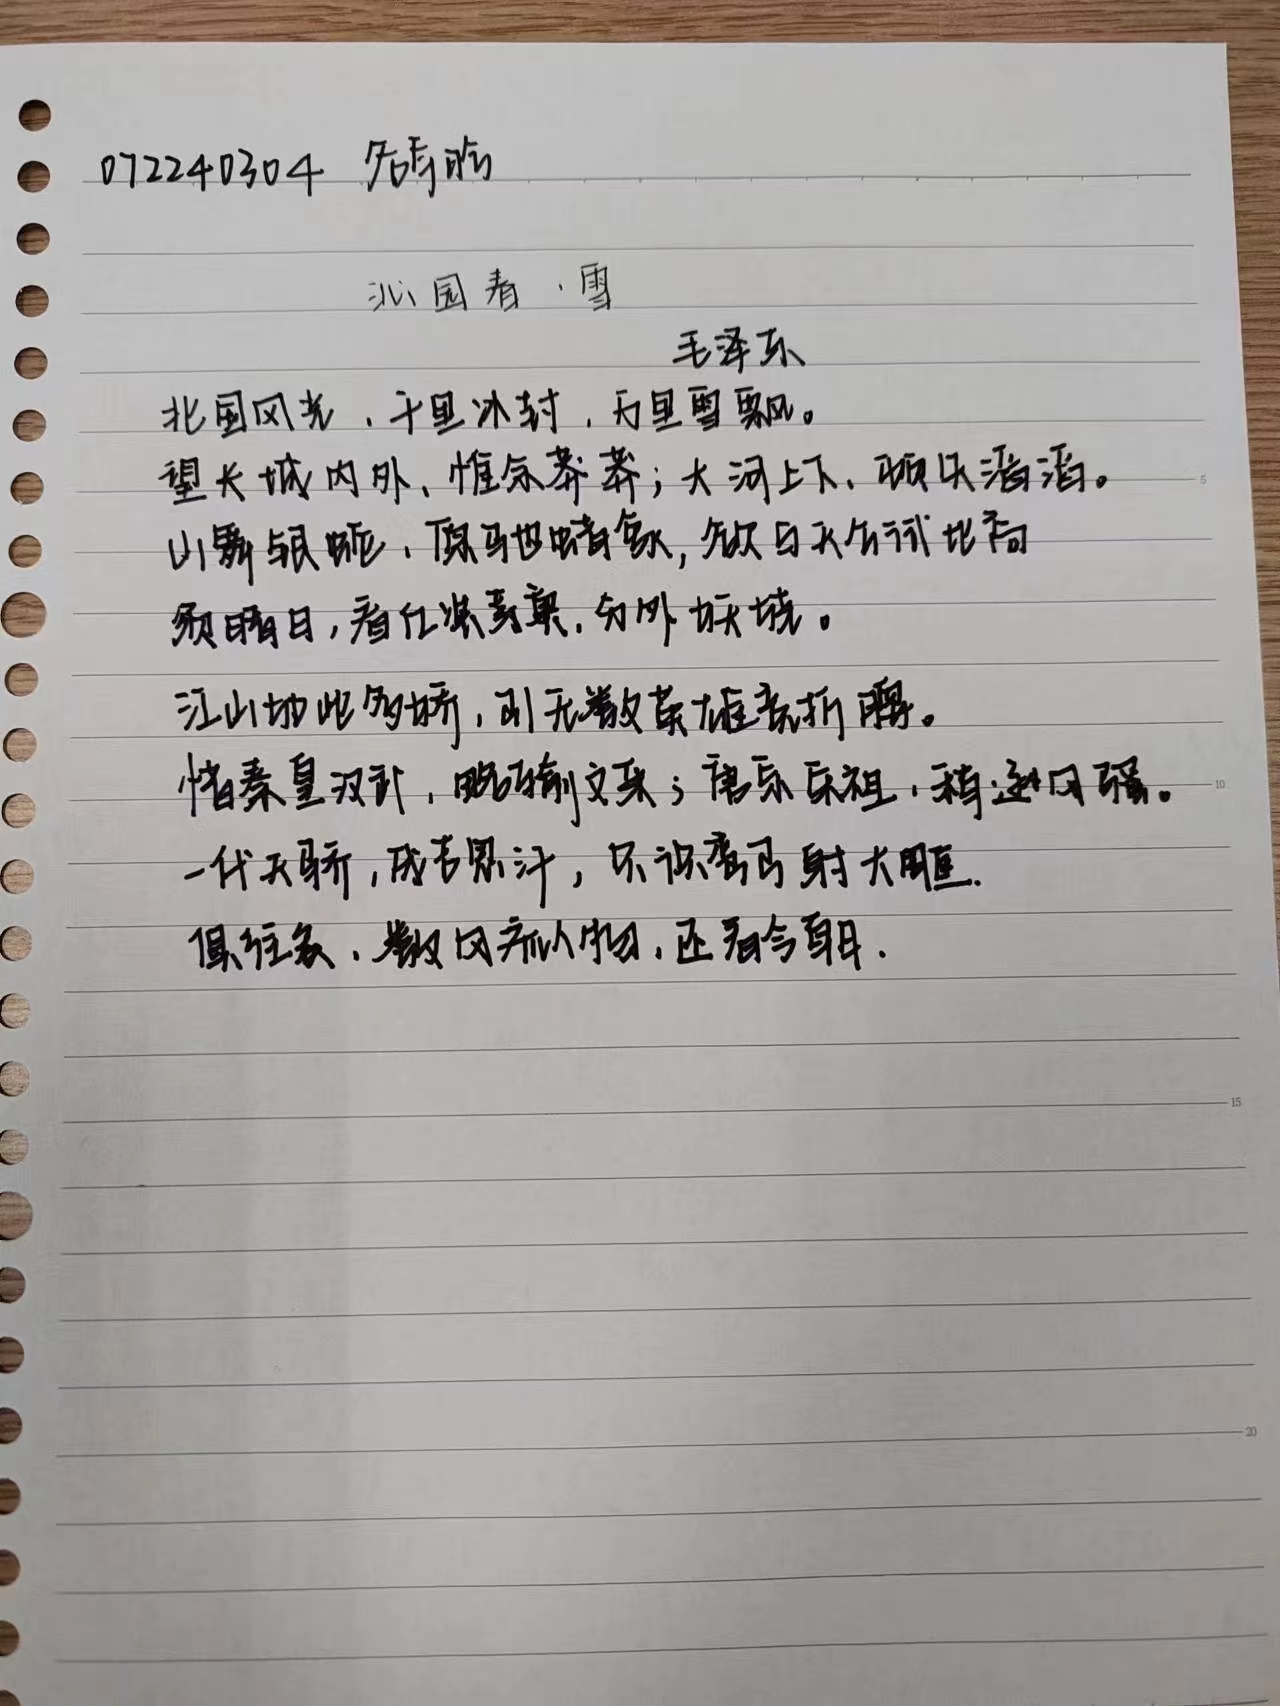 072240304
沁园春·雪
毛泽东
北国风光，千里冰封，万里雪飘。
望长城内外，惟余莽莽；大河上下，顿失滔滔。
山舞银蛇，原驰蜡象，欲与天公试比高
须晴日，看红装素裹，分外妖娆。
江山如此多娇，引无数英雄竞折腰。
惜秦皇汉武，略输文采；唐宗宋祖，稍逊风骚。
一代天骄，成吉思汗，只识弯弓射大雕.
俱往矣，数风流人物，还看今朝.
5
10
15
20